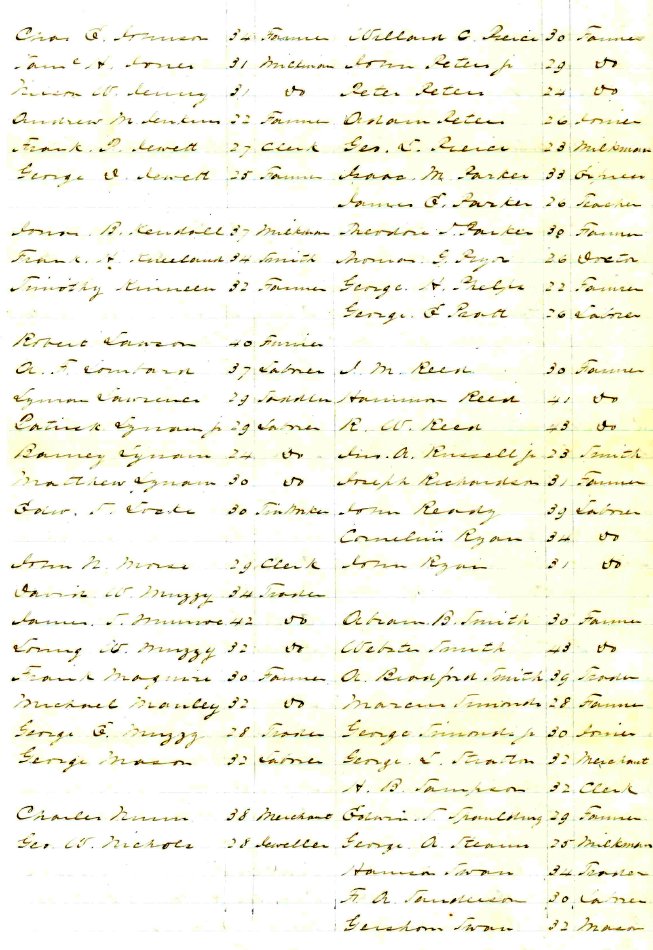 Chas E. Johnson 34 Farmer
Saml A. Jones 31 Milkman
W. Jenny 31 Do
Andrew M. Jenkins 22 Farmer
Frank P. Jewett 27 Clerk
George D. Jewett 25 Farmer
Jonas B. Kendall 37 Milkman
Frank A. Kneeland 34 Smith
Timothy Kinneen 32 Farmer
Robert Lawson 40 Farmer
A. F. Lombard 37 Labrer
Lyman Lawrence 29 Saddler
Patrick Lynam jr 29 Labrer
Barney Lynam 24 Do
Matthew Lynam 30 Do
Edw. T. Locke 30
John N. Morse 29 Clerk
David W. Muzzy 34 Trader
James S. Munroe 42 Do
Loring W. Muzzy 32 Do
Frank Maguire 30 Farmer
Michael Manley 32 Do
George E. Muzzy 28 Trader
George Mason 32 Labrer
Charles Nunn 38 Merchant
Geo. W. Nichols 28 Jeweller
Willard C. Peirce 30 Farmer
John Peters jr 29 Do
Peter Peters 24 Do
Adam Peters 26 Joiner
Geo. L. Pierce 23 Milkman
Isaac M. Parker 33
James E. Parker 26 Teacher
Theodore J. Parker 30 Farmer
Thomas G. Pryor 26 Doctor
George H. Phelps 22 Farmer
George E. Pratt 26 Labrer
J. M. Reed 30 Farmer
Hammon Reed 41 Do
R. W. Reed 43 Do
Jas. A. Russell jr 23 Smith
Joseph Richardson 31 Farmer
John Ready 39 Labrer
Cornelius Ryan 34 Do
John Ryan 31 Do
Abram B. Smith 30 Farmer
Webster Smith 43 Do
A. Bradford Smith 39 Trader
Marcus Simonds 28 Farmer
George Simonds jr 30 Joiner
George L. Stratton 32 Merchant
H. B. Sampson 32 Clerk
Edwin S. Spaulding 29 Farmer
George A. Stearns 25 Milkman
Swan 34 Trader
F. A. Sanderson 30 Labrer
Gershom Swan 32 Mason